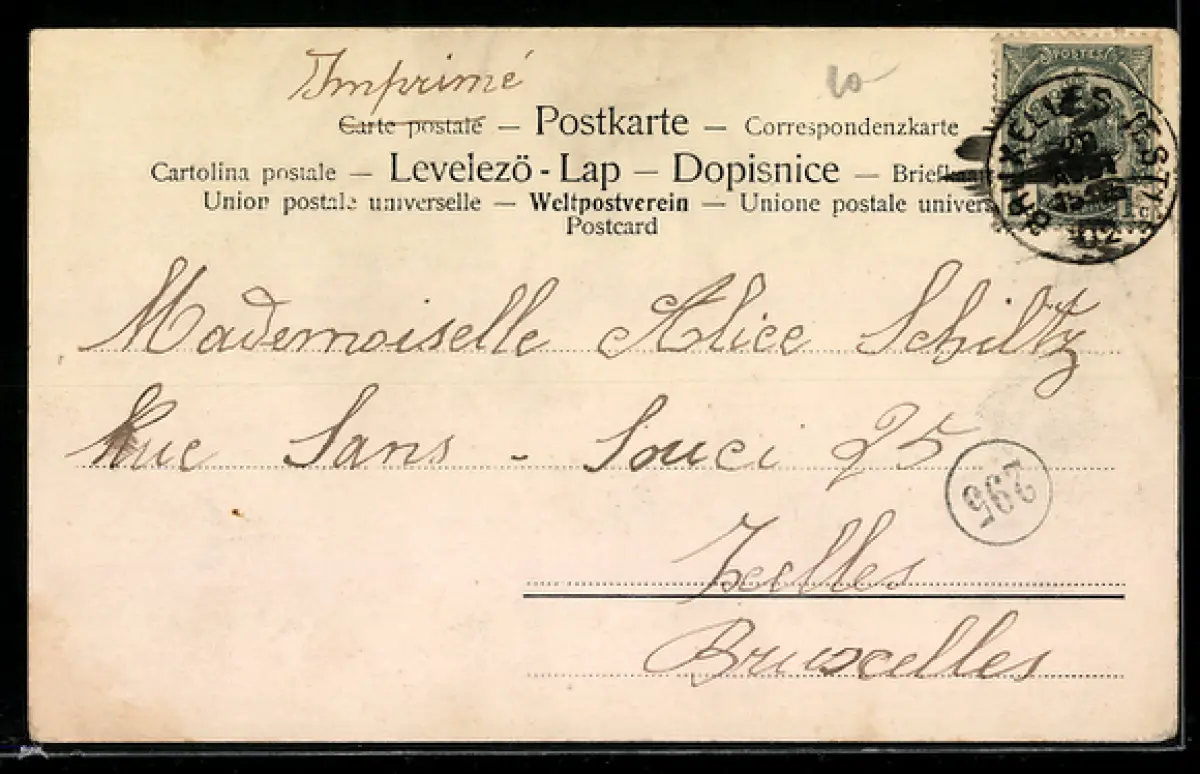 Imprimé
10
Carte postale — Postkarte — Correspondenzkarte
Cartolina postale — Levelező-Lap — Dopisnice — Briefkaart
Union postale universelle — Weltpostverein — Unione postale univers
Postcard
POSTES
BRUXELLES (EST)
AOUT
02
1c
Mademoiselle Alice Schiltz
Rue Sans - Souci 25
295
Ixelles
Bruxelles